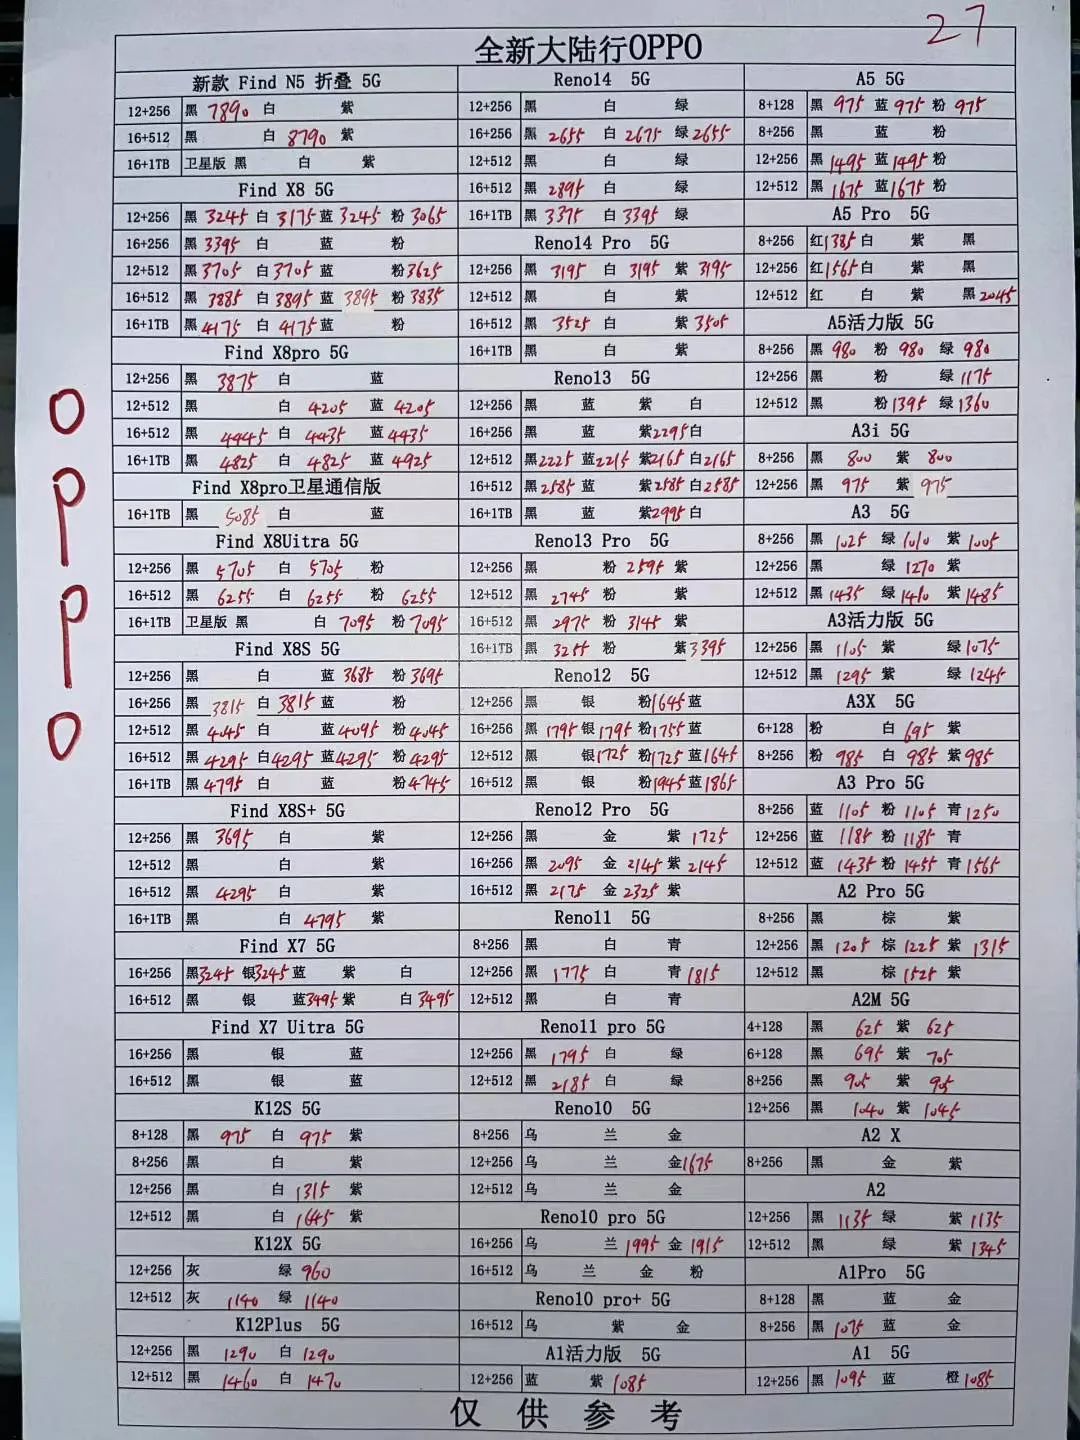 27
全新大陆行OPPO
OPPO
新款 Find N5 折叠 5G
12+256 黑 7890 白 紫
16+512 黑 白 8790 紫
16+1TB 卫星版 黑 白 紫
Find X8 5G
12+256 黑 3245 白 3175 蓝 3245 粉 3065
16+256 黑 3395 白 蓝 粉
12+512 黑 3705 白 3705 蓝 粉 3625
16+512 黑 3885 白 3895 蓝 3895 粉 3835
16+1TB 黑 4175 白 4175 蓝 粉
Find X8pro 5G
12+256 黑 3875 白 蓝
12+512 黑 白 4205 蓝 4205
16+512 黑 4445 白 4435 蓝 4435
16+1TB 黑 4825 白 4825 蓝 4925
Find X8pro卫星通信版
16+1TB 黑 5085 白 蓝
Find X8Uitra 5G
12+256 黑 5705 白 5705 粉
16+512 黑 6255 白 6255 粉 6255
16+1TB 卫星版 黑 白 7095 粉 7095
Find X8S 5G
12+256 黑 白 蓝 3685 粉 3695
16+256 黑 3815 白 3815 蓝 粉
12+512 黑 4045 白 蓝 4095 粉 4045
16+512 黑 4295 白 4295 蓝 4295 粉 4295
16+1TB 黑 4795 白 蓝 粉 4745
Find X8S+ 5G
12+256 黑 3695 白 紫
12+512 黑 白 紫
16+512 黑 4295 白 紫
16+1TB 黑 白 4795 紫
Find X7 5G
16+256 黑 3245 银 3245 蓝 紫 白
16+512 黑 银 蓝 3495 紫 白 3495
Find X7 Uitra 5G
16+256 黑 银 蓝
16+512 黑 银 蓝
K12S 5G
8+128 黑 975 白 975 紫
8+256 黑 白 紫
12+256 黑 白 1315 紫
12+512 黑 白 1645 紫
K12X 5G
12+256 灰 绿 960
12+512 灰 1140 绿 1140
K12Plus 5G
12+256 黑 1290 白 1290
12+512 黑 1460 白 1470
Reno14 5G
12+256 黑 白 绿
16+256 黑 2655 白 2675 绿 2655
12+512 黑 白 绿
16+512 黑 2895 白 绿
16+1TB 黑 3375 白 3395 绿
Reno14 Pro 5G
12+256 黑 3195 白 3195 紫 3195
12+512 黑 白 紫
16+512 黑 3525 白 紫 3505
16+1TB 黑 白 紫
Reno13 5G
12+256 黑 蓝 紫 白
16+256 黑 蓝 紫 2295 白
12+512 黑 2225 蓝 2215 紫 2165 白 2165
16+512 黑 2585 蓝 紫 2585 白 2585
16+1TB 黑 蓝 紫 2995 白
Reno13 Pro 5G
12+256 黑 粉 2595 紫
12+512 黑 2745 粉 紫
16+512 黑 2975 粉 3145 紫
16+1TB 黑 3255 粉 紫 3395
Reno12 5G
12+256 黑 银 粉 1645 蓝
16+256 黑 1795 银 1795 粉 1755 蓝
12+512 黑 银 1725 粉 1725 蓝 1645
16+512 黑 银 粉 1945 蓝 1865
Reno12 Pro 5G
12+256 黑 金 紫 1725
16+256 黑 2095 金 2145 紫 2145
16+512 黑 2175 金 2325 紫
Reno11 5G
8+256 黑 白 青
12+256 黑 1775 白 青 1815
12+512 黑 白 青
Reno11 pro 5G
12+256 黑 1795 白 绿
12+512 黑 2185 白 绿
Reno10 5G
8+256 乌 兰 金
12+256 乌 兰 金 1675
12+512 乌 兰 金
Reno10 pro 5G
16+256 乌 兰 1995 金 1915
16+512 乌 兰 金 粉
Reno10 pro+ 5G
16+512 乌 紫 金
A1活力版 5G
12+256 蓝 紫 1085
A5 5G
8+128 黑 975 蓝 975 粉 975
8+256 黑 蓝 粉
12+256 黑 1495 蓝 1495 粉
12+512 黑 1675 蓝 1675 粉
A5 Pro 5G
8+256 红 1385 白 紫 黑
12+256 红 1565 白 紫 黑
12+512 红 白 紫 黑 2045
A5活力版 5G
8+256 黑 980 粉 980 绿 980
12+256 黑 粉 绿 1175
12+512 黑 粉 1395 绿 1360
A3i 5G
8+256 黑 800 紫 800
12+256 黑 975 紫 975
A3 5G
8+256 黑 1025 绿 1010 紫 1005
12+256 黑 绿 1270 紫
12+512 黑 1435 绿 1410 紫 1485
A3活力版 5G
12+256 黑 1105 紫 绿 1075
12+512 黑 1295 紫 绿 1245
A3X 5G
6+128 粉 白 695 紫
8+256 粉 985 白 985 紫 985
A3 Pro 5G
8+256 蓝 1105 粉 1105 青 1250
12+256 蓝 1185 粉 1185 青
12+512 蓝 1435 粉 1455 青 1565
A2 Pro 5G
8+256 黑 棕 紫
12+256 黑 1205 棕 1225 紫 1315
12+512 黑 棕 1525 紫
A2M 5G
4+128 黑 625 紫 625
6+128 黑 695 紫 705
8+256 黑 905 紫 905
12+256 黑 1040 紫 1045
A2 X
8+256 黑 金 紫
A2
12+256 黑 1135 绿 紫 1135
12+512 黑 绿 紫 1345
A1Pro 5G
8+128 黑 蓝 金
8+256 黑 1075 蓝 金
A1 5G
12+256 黑 1095 蓝 橙 1085
仅供参考